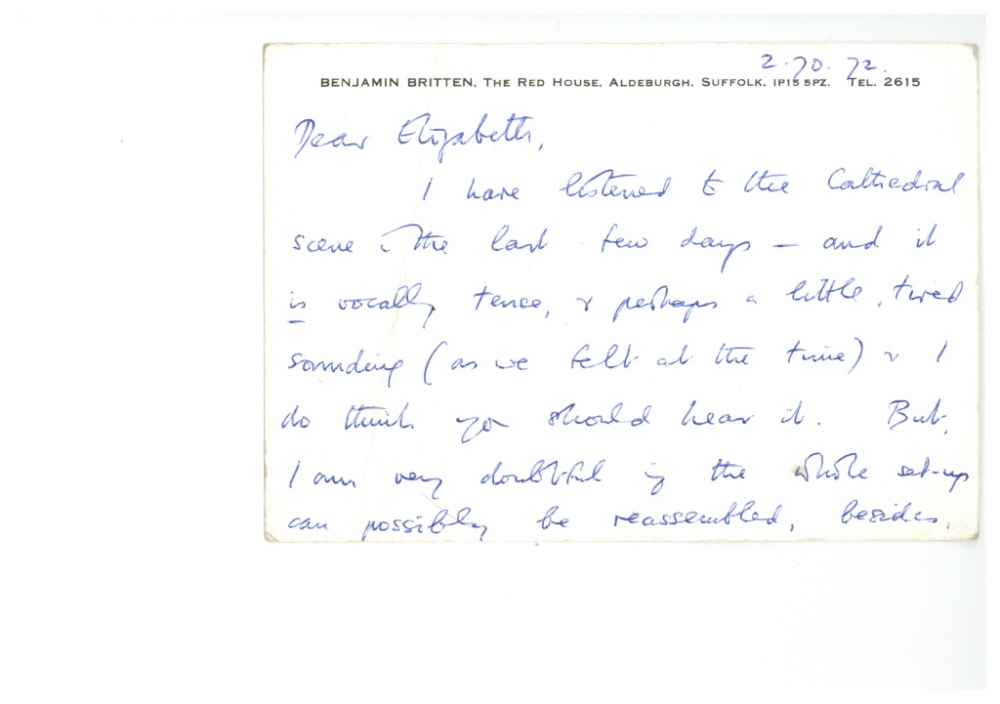 2.10.72.
BENJAMIN BRITTEN, THE RED HOUSE, ALDEBURGH, SUFFOLK, IP15 5PZ. TEL. 2615
Dear Elizabeth,
I have listened to the Cathedral
scene in the last few days – and it
is vocally tence, & perhaps a little, tired
sounding (as we felt at the time) & I
do think you should hear it. But,
I am very doubtful if the whole set-up
can possibly be reassembled, besides,